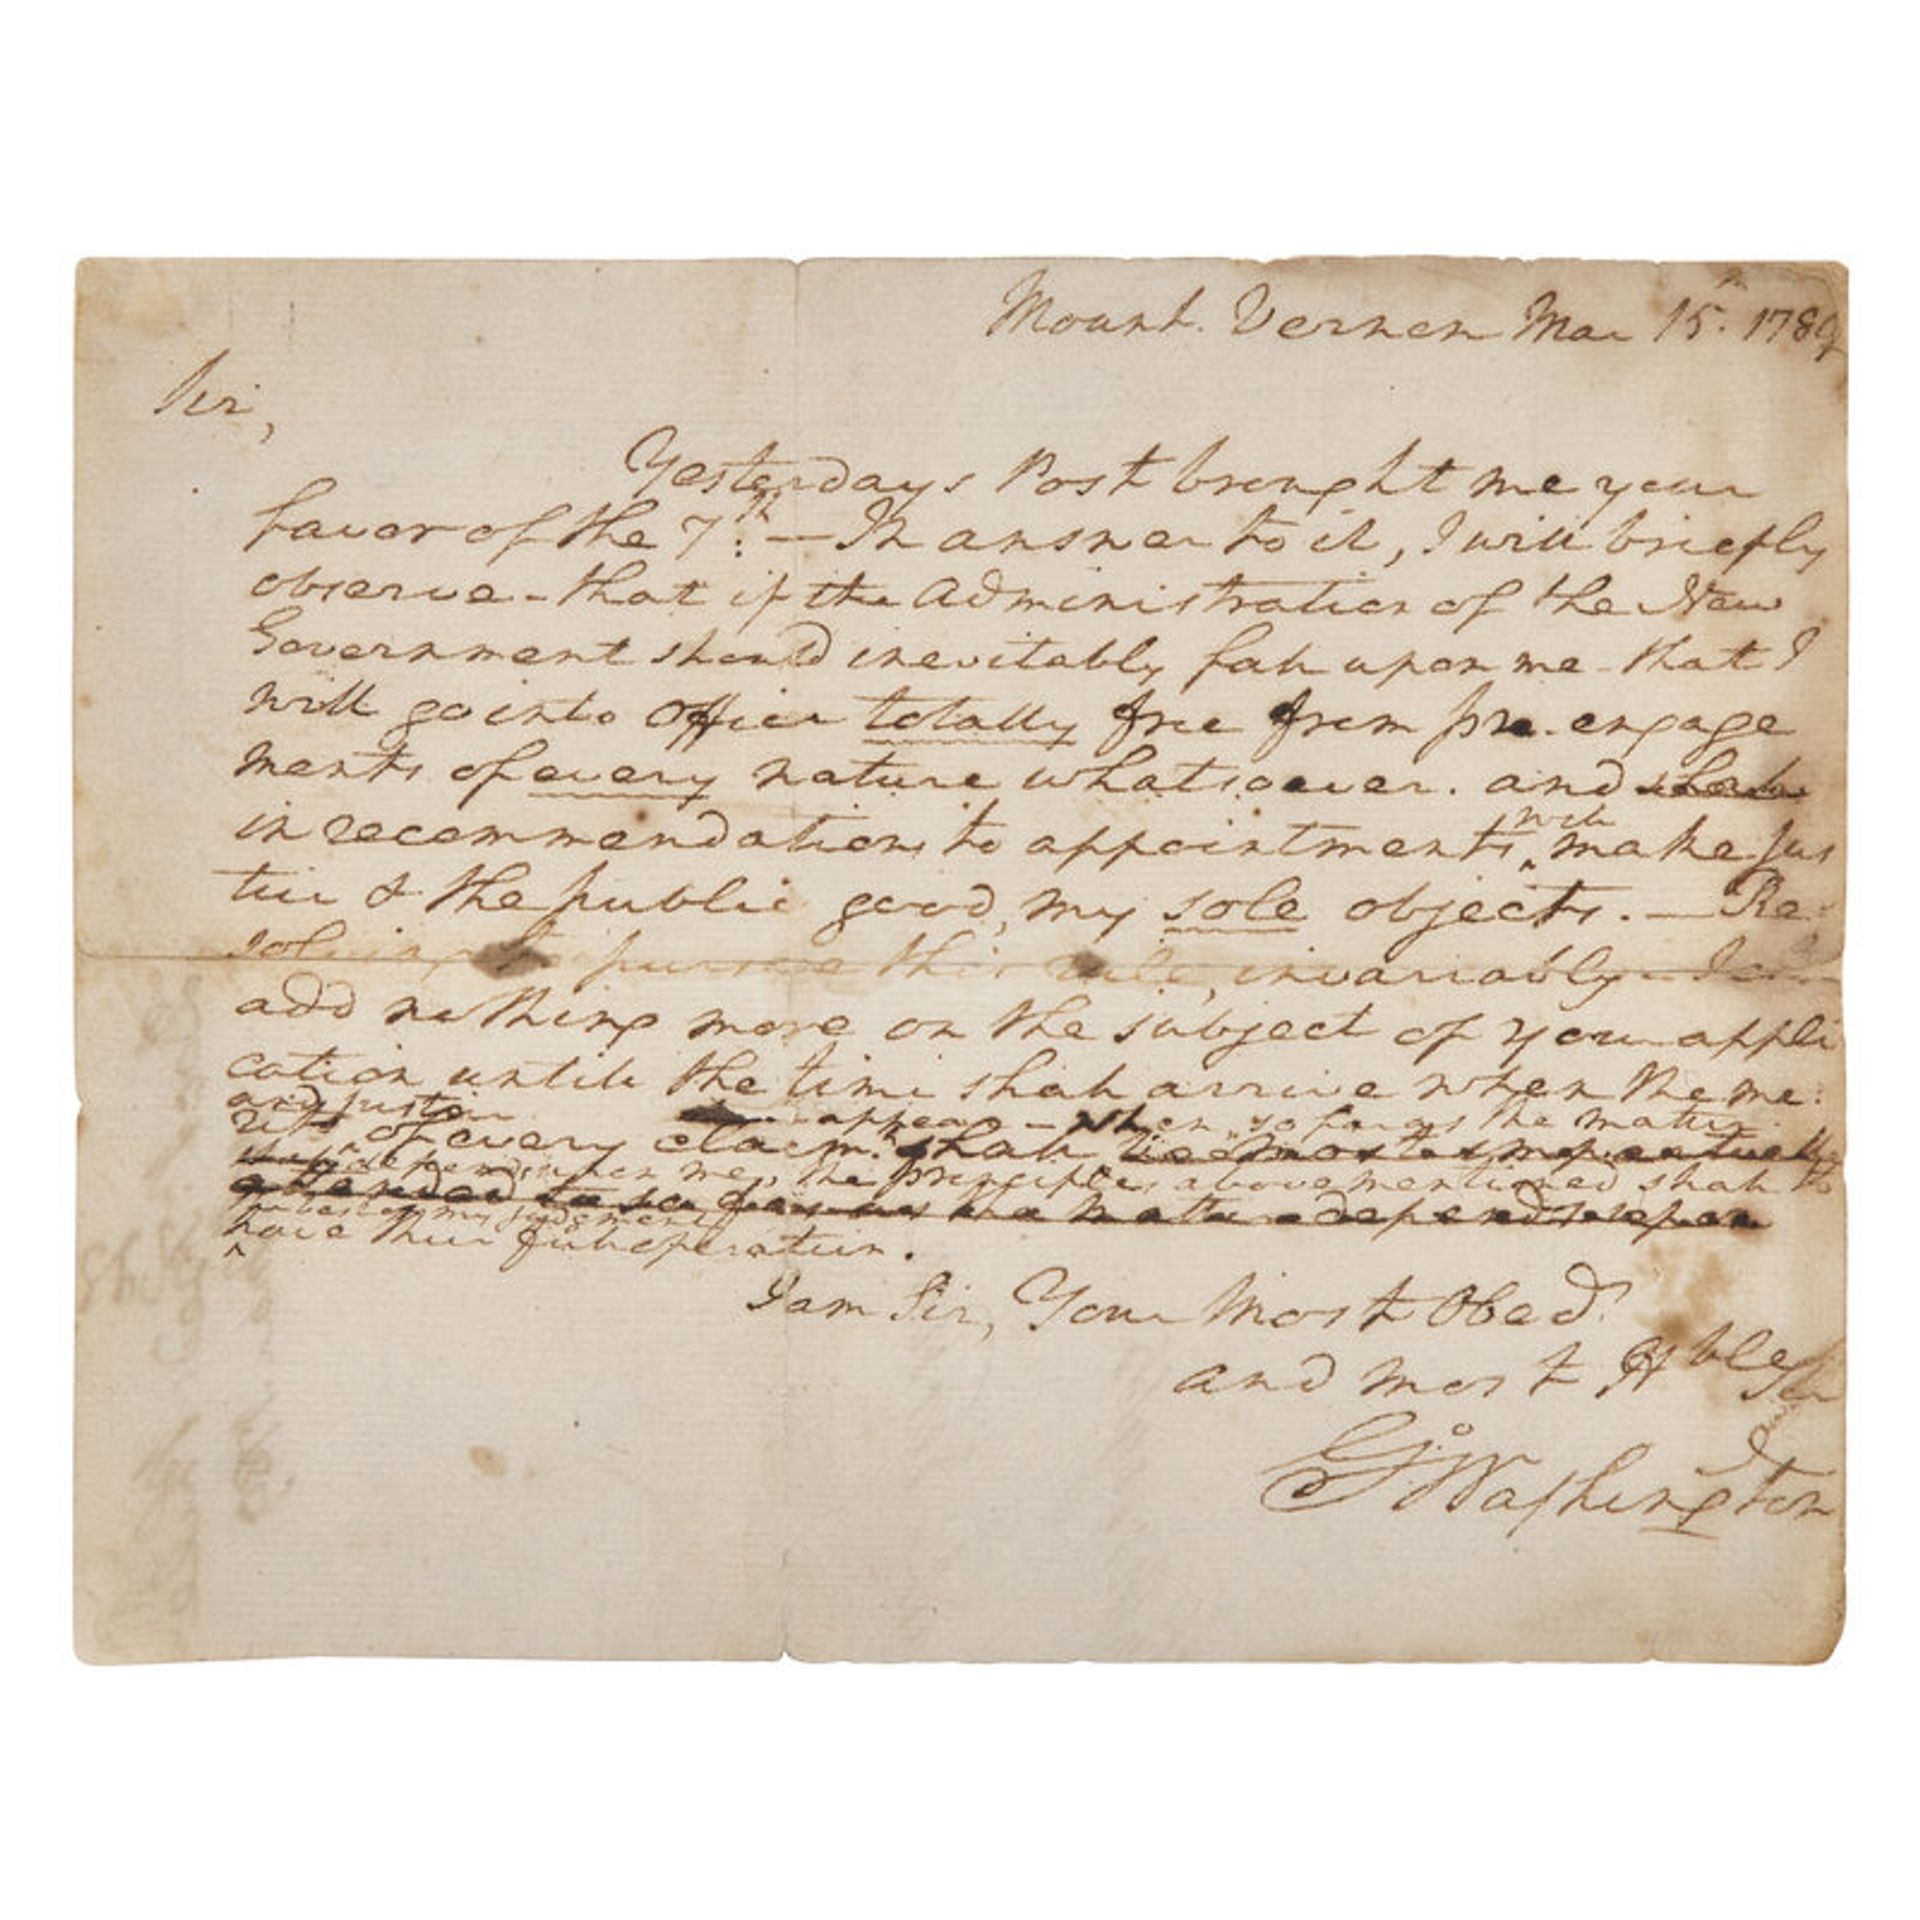 Mount Vernon Mar 15th 1789
Sir,
Yesterdays Post brought me your
favor of the 7th: — In answer to it, I will briefly
observe - that if the Administration of the New
Government should inevitably fall upon me - that I
will go into Office totally free from pre-engage
ments of every nature whatsoever. and shall
in recommendations to appointments will make jus
tice & the public good, my sole objects. — Re-
solving to pursue this rule, invariably - I
add nothing more on the subject of your appli
cation until the time shall arrive when the me:
and justice appear - when so far as the matter
rits of every claim shall be most impartially
depends upon me, the principles abovementioned shall
attended to so far as the matter depends upon
best of my judgment
have their full operation.
I am Sir, Your Most Obed.
and most Hble
Go: Washington